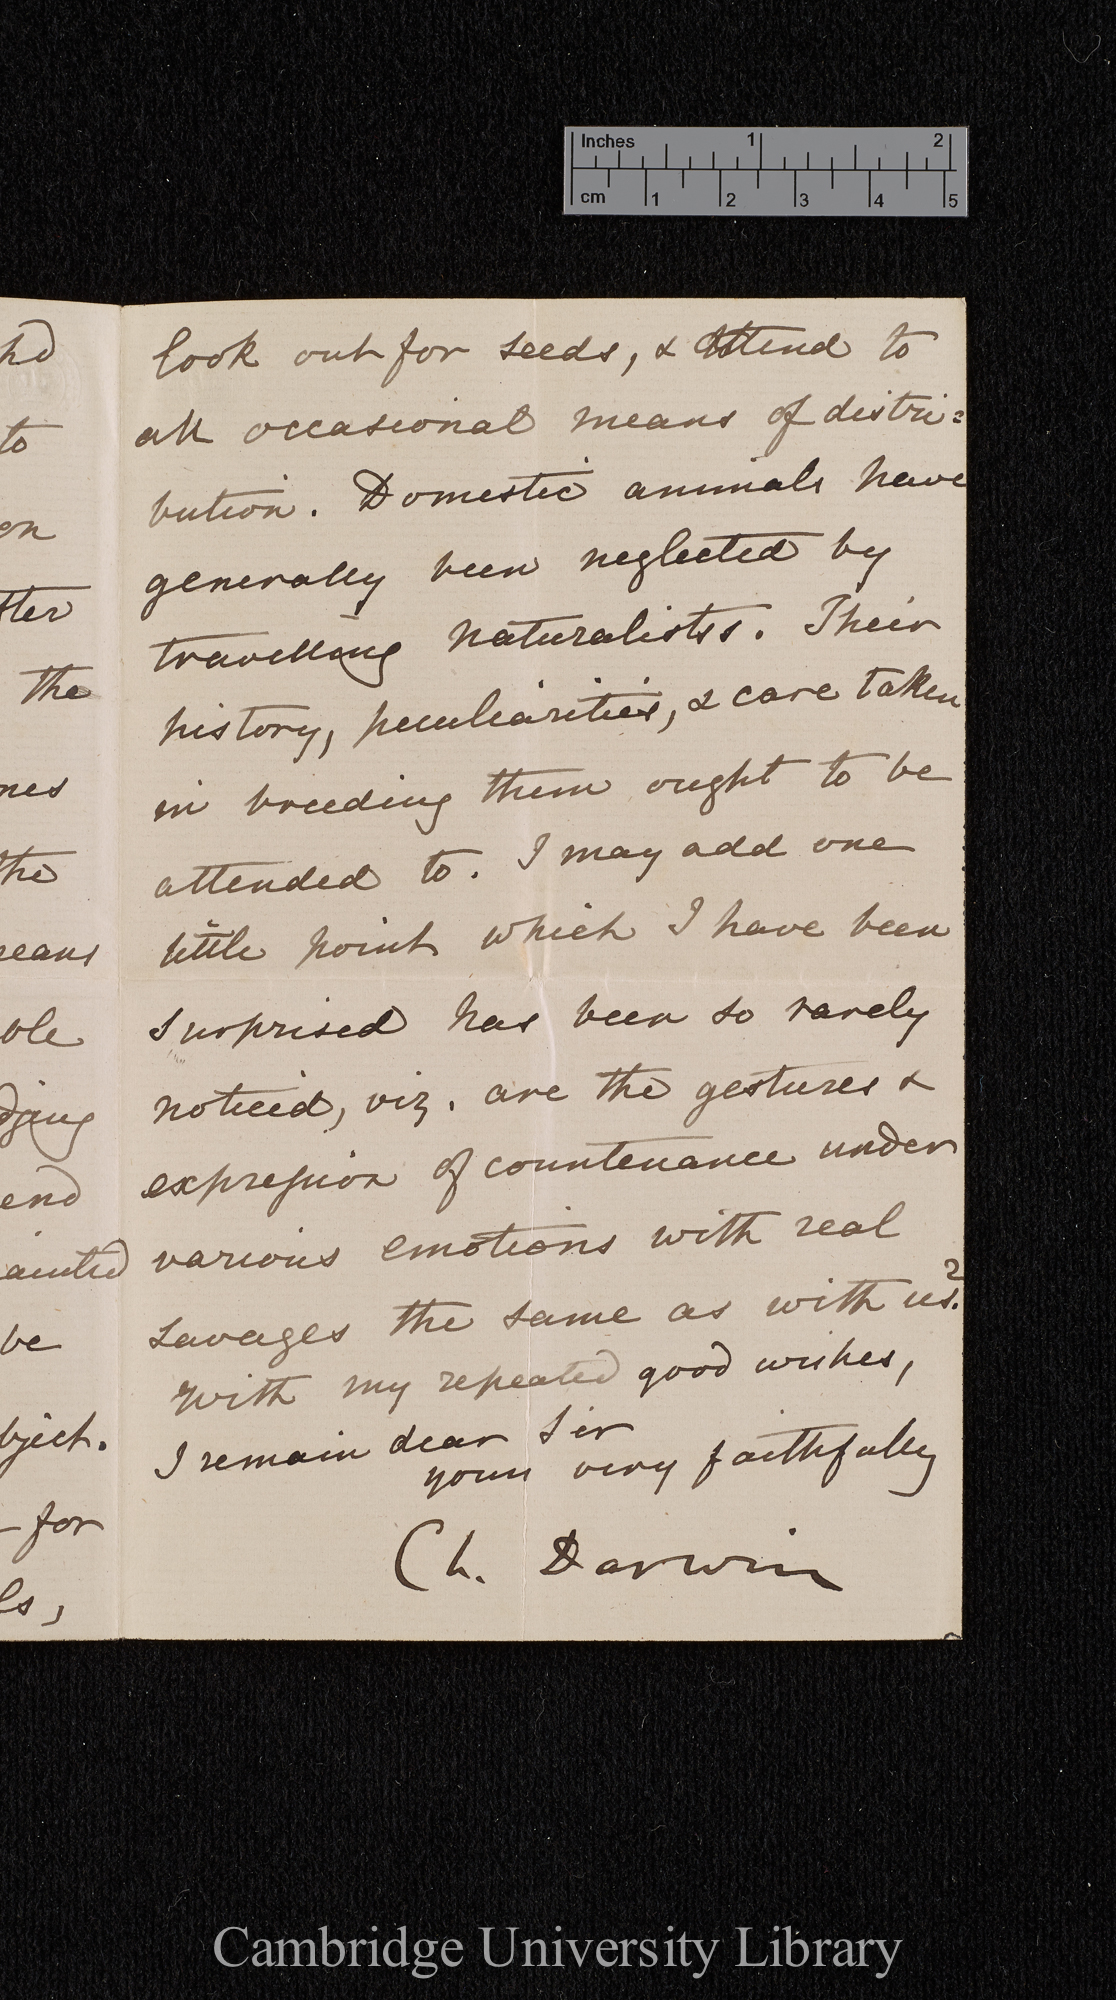 Inches 1 2
cm 1 2 3 4 5
hd
to
on
tter
the
nes
the
means
ble
dging
end
ainted
be
bject.
– for
ls,
look out for seeds, & attend to
all occasional means of distri=
bution. Domestic animals have
generally been neglected by
travelling naturalists. Their
history, peculiarities, & care taken
in breeding them ought to be
attended to. I may add one
little point which I have been
surprised has been so rarely
noticed, viz. are the gestures &
expression of countenance under
various emotions with real
savages the same as with us?
With my repeated good wishes,
I remain dear Sir
yours very faithfully
Ch. Darwin
Cambridge University Library